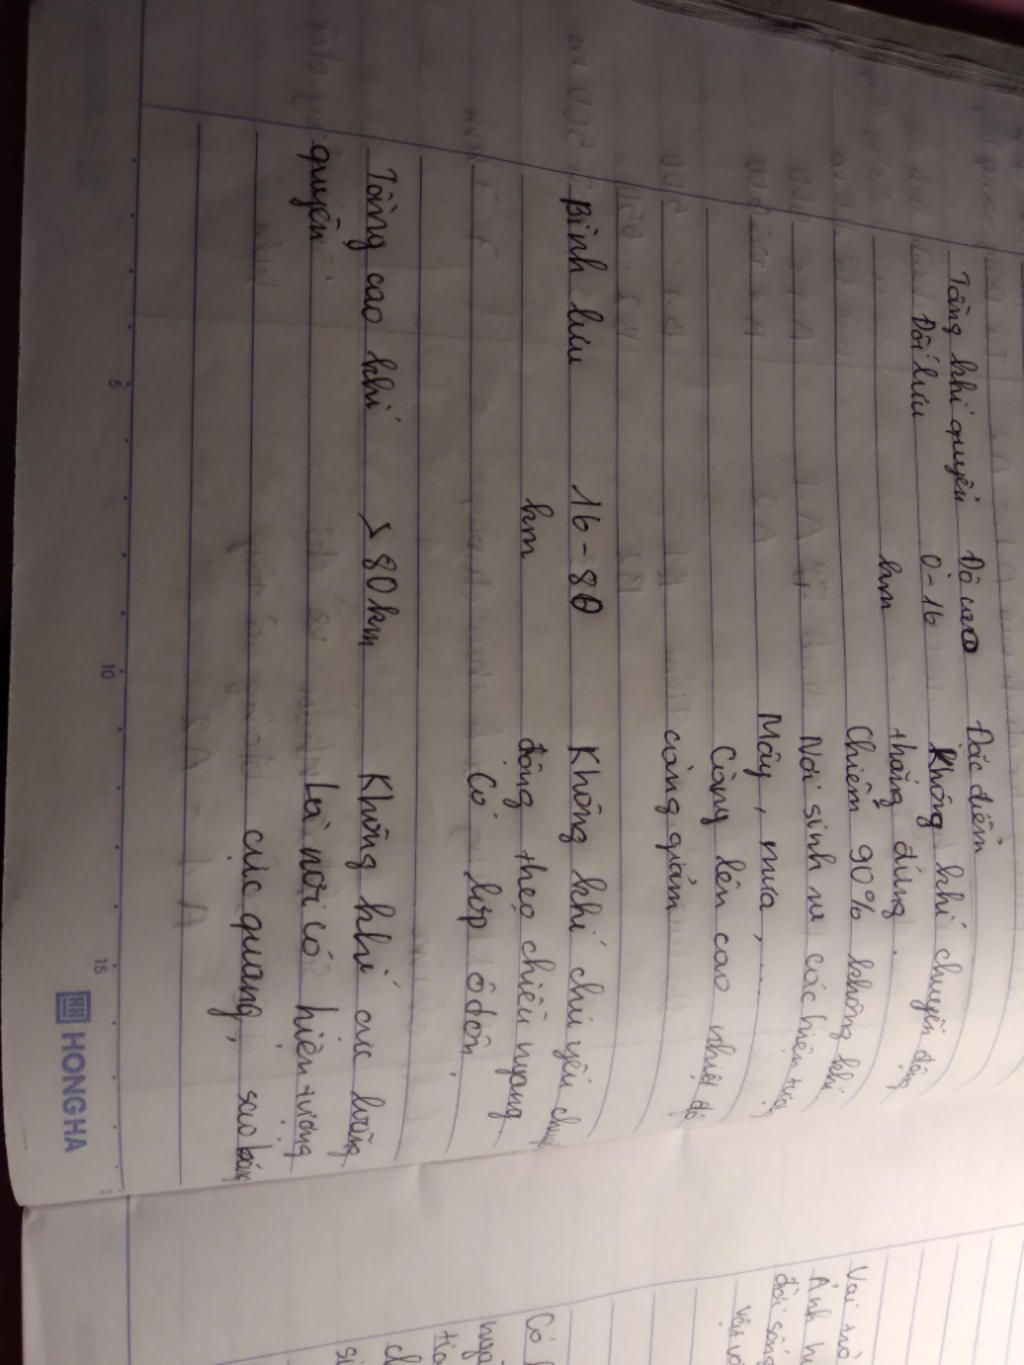 Tầng khí quyển Độ cao Đặc điểm
Đối lưu 0-16 Không khí chuyển động
km thẳng đứng.
Chiếm 90% không khí
Nơi sinh ra các hiện tượng
Mây, mưa, ....
Càng lên cao nhiệt độ
càng giảm
Bình lưu 16-80 Không khí chủ yếu
km động theo chiều ngang
Có lớp ô dôn.
Tầng cao khí >80km Không khí cực loãng
quyển Là nơi có hiện tượng
cực quang, sao băng
5
10
15
HONGHA
Vai trò
Ảnh
đời sống
Có